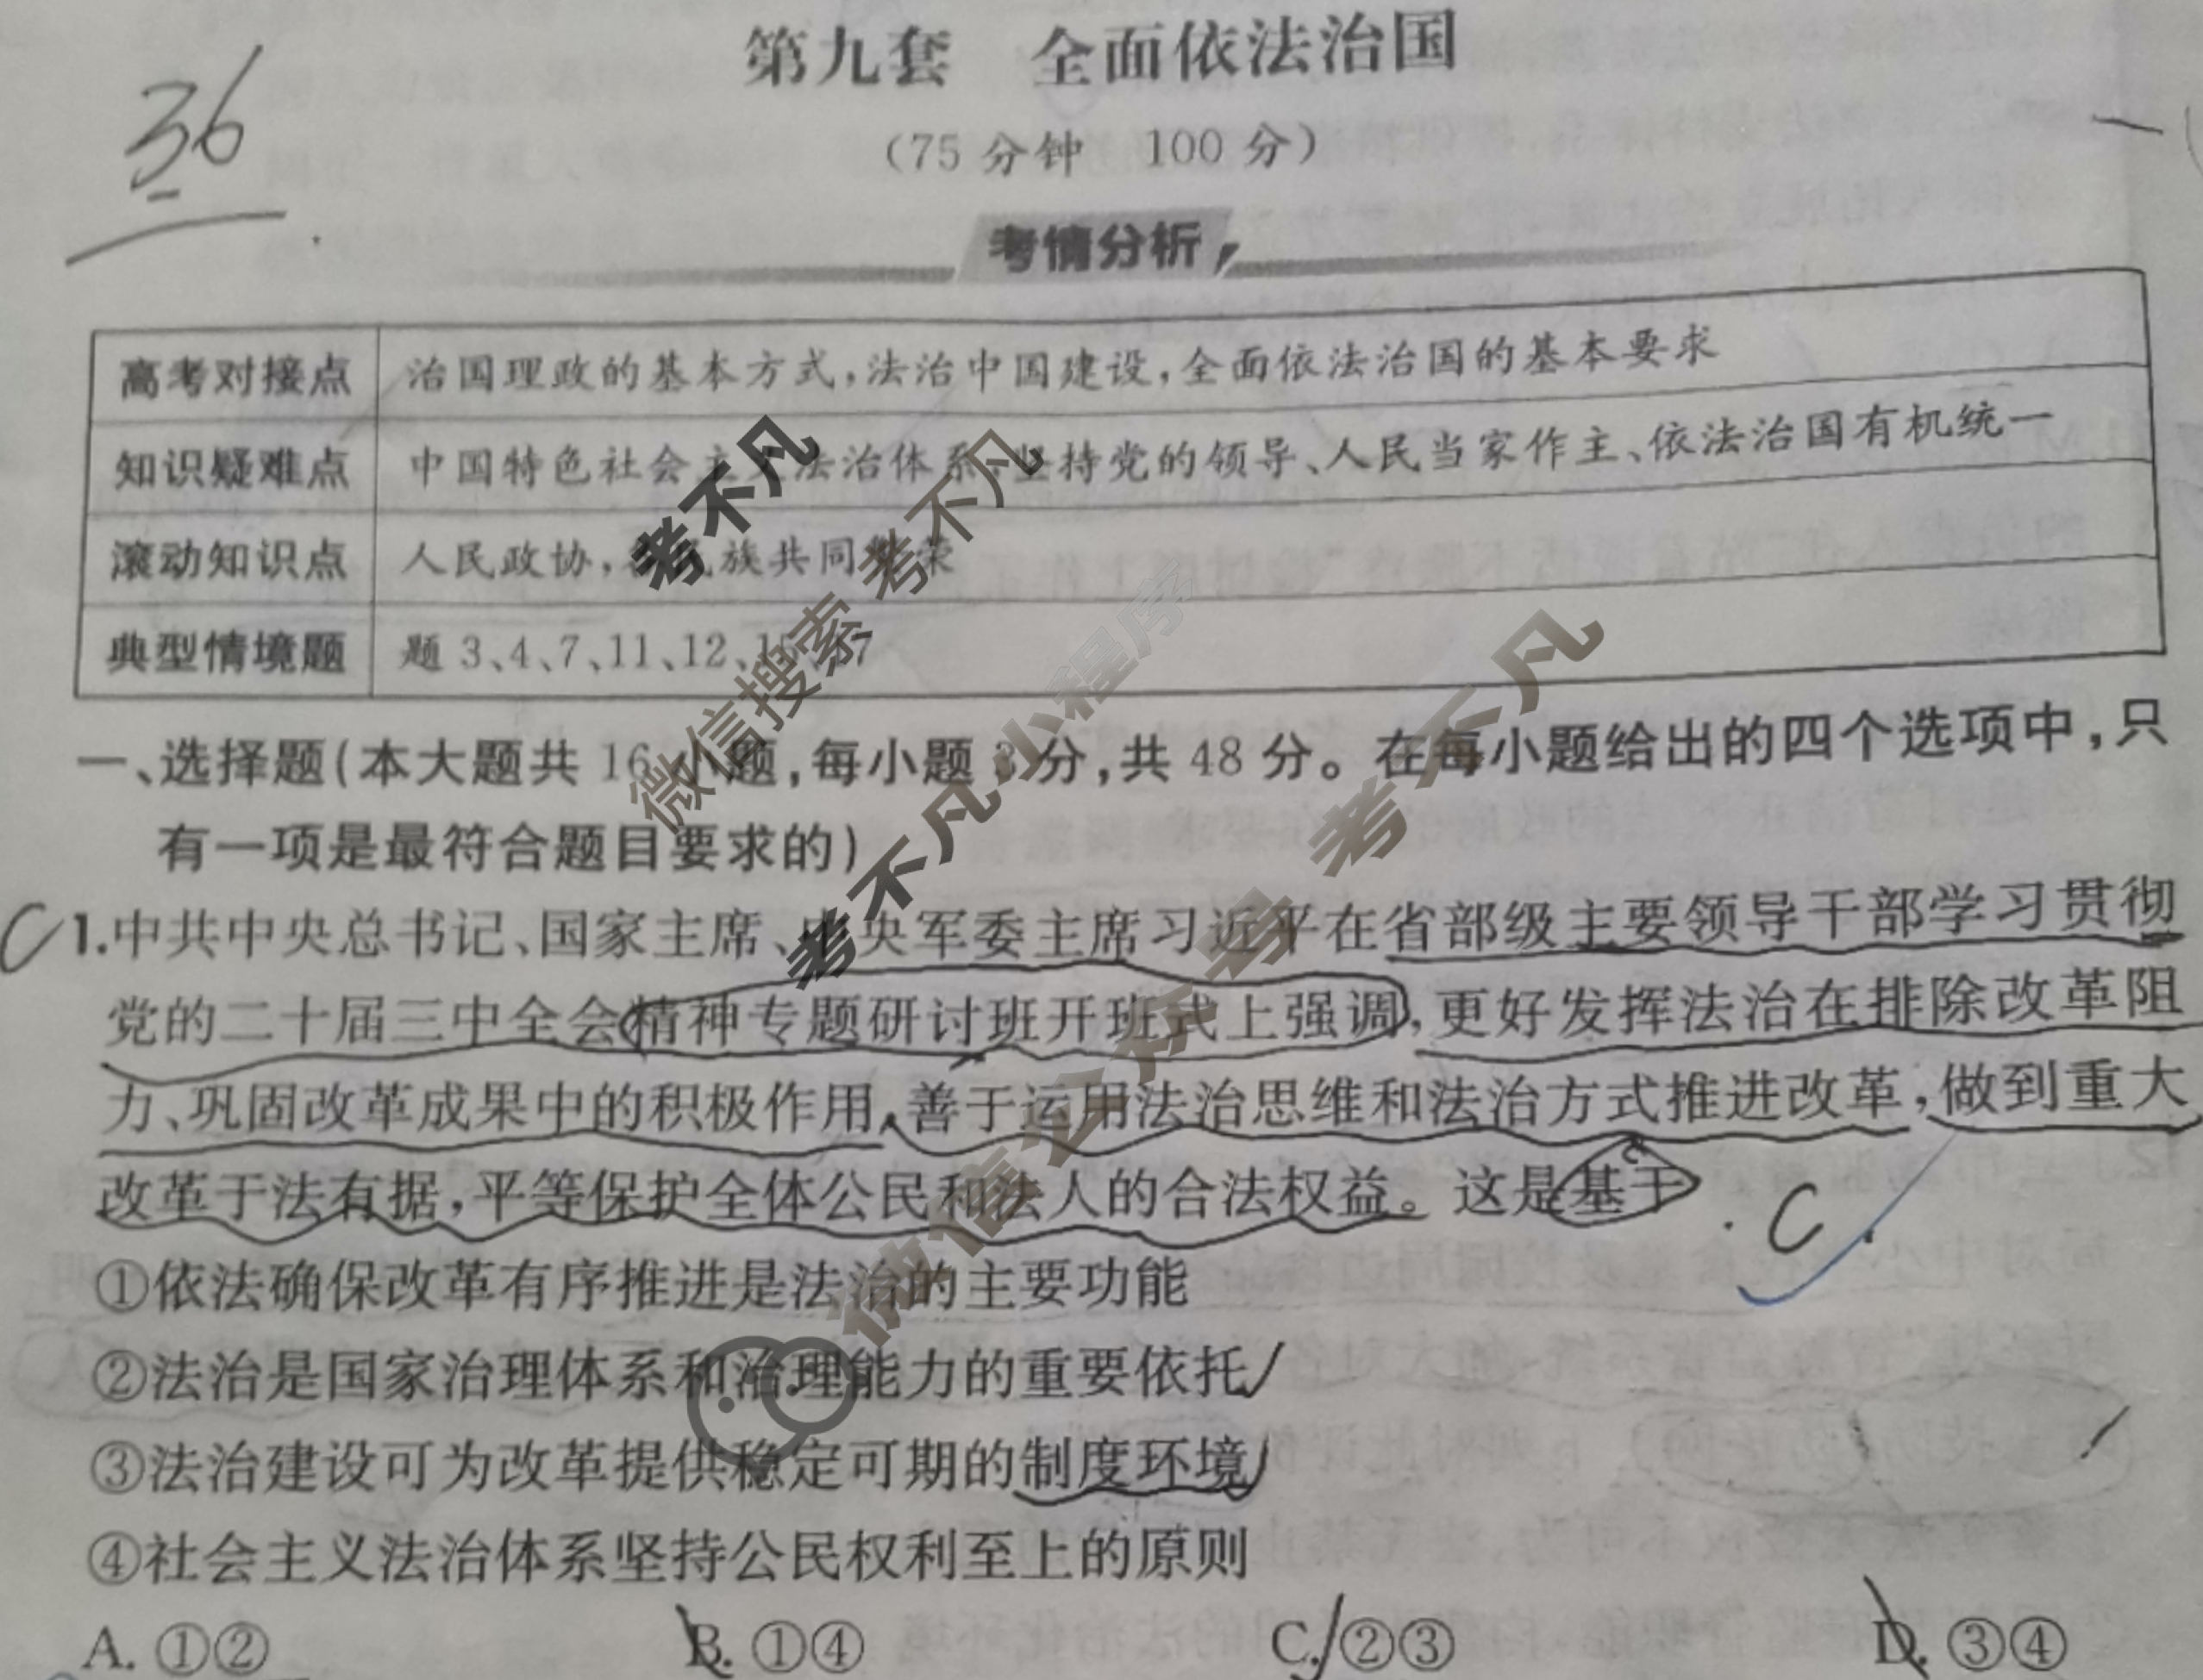 第九套 全面依法治国
36
(75分钟 100分)
考情分析
高考对接点 治国理政的基本方式,法治中国建设,全面依法治国的基本要求
知识疑难点 中国特色社会主义法治体系,坚持党的领导、人民当家作主、依法治国有机统一
滚动知识点 人民政协,各民族共同繁荣
典型情境题 题3、4、7、11、12、15、17
一、选择题(本大题共16小题,每小题3分,共48分。在每小题给出的四个选项中,只
有一项是最符合题目要求的)
C 1.中共中央总书记、国家主席、中央军委主席习近平在省部级主要领导干部学习贯彻
党的二十届三中全会精神专题研讨班开班式上强调,更好发挥法治在排除改革阻
力、巩固改革成果中的积极作用,善于运用法治思维和法治方式推进改革,做到重大
改革于法有据,平等保护全体公民和法人的合法权益。这是基于
C
①依法确保改革有序推进是法治的主要功能
②法治是国家治理体系和治理能力的重要依托
③法治建设可为改革提供稳定可期的制度环境
④社会主义法治体系坚持公民权利至上的原则
A.①② B.①④ C.②③ D.③④
考不凡
微信搜索 考不凡
考不凡小程序
微信公众号 考不凡